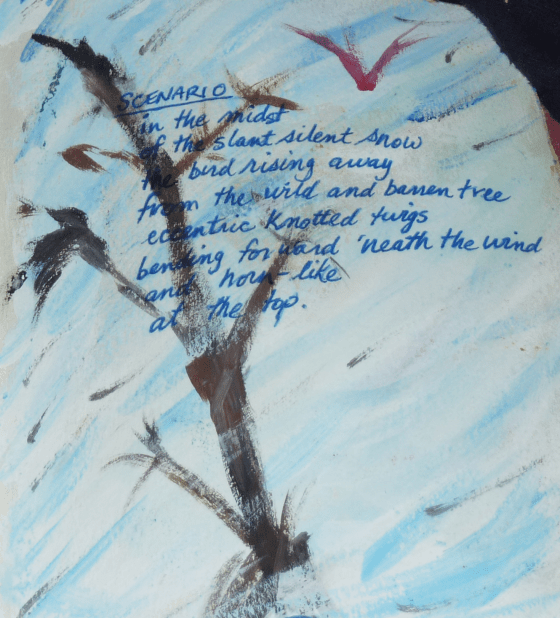 SCENARIO
in the midst
of the slant silent snow
the bird rising away
from the wild and barren tree
eccentric knotted twigs
bending forward 'neath the wind
and horn-like
at the top.